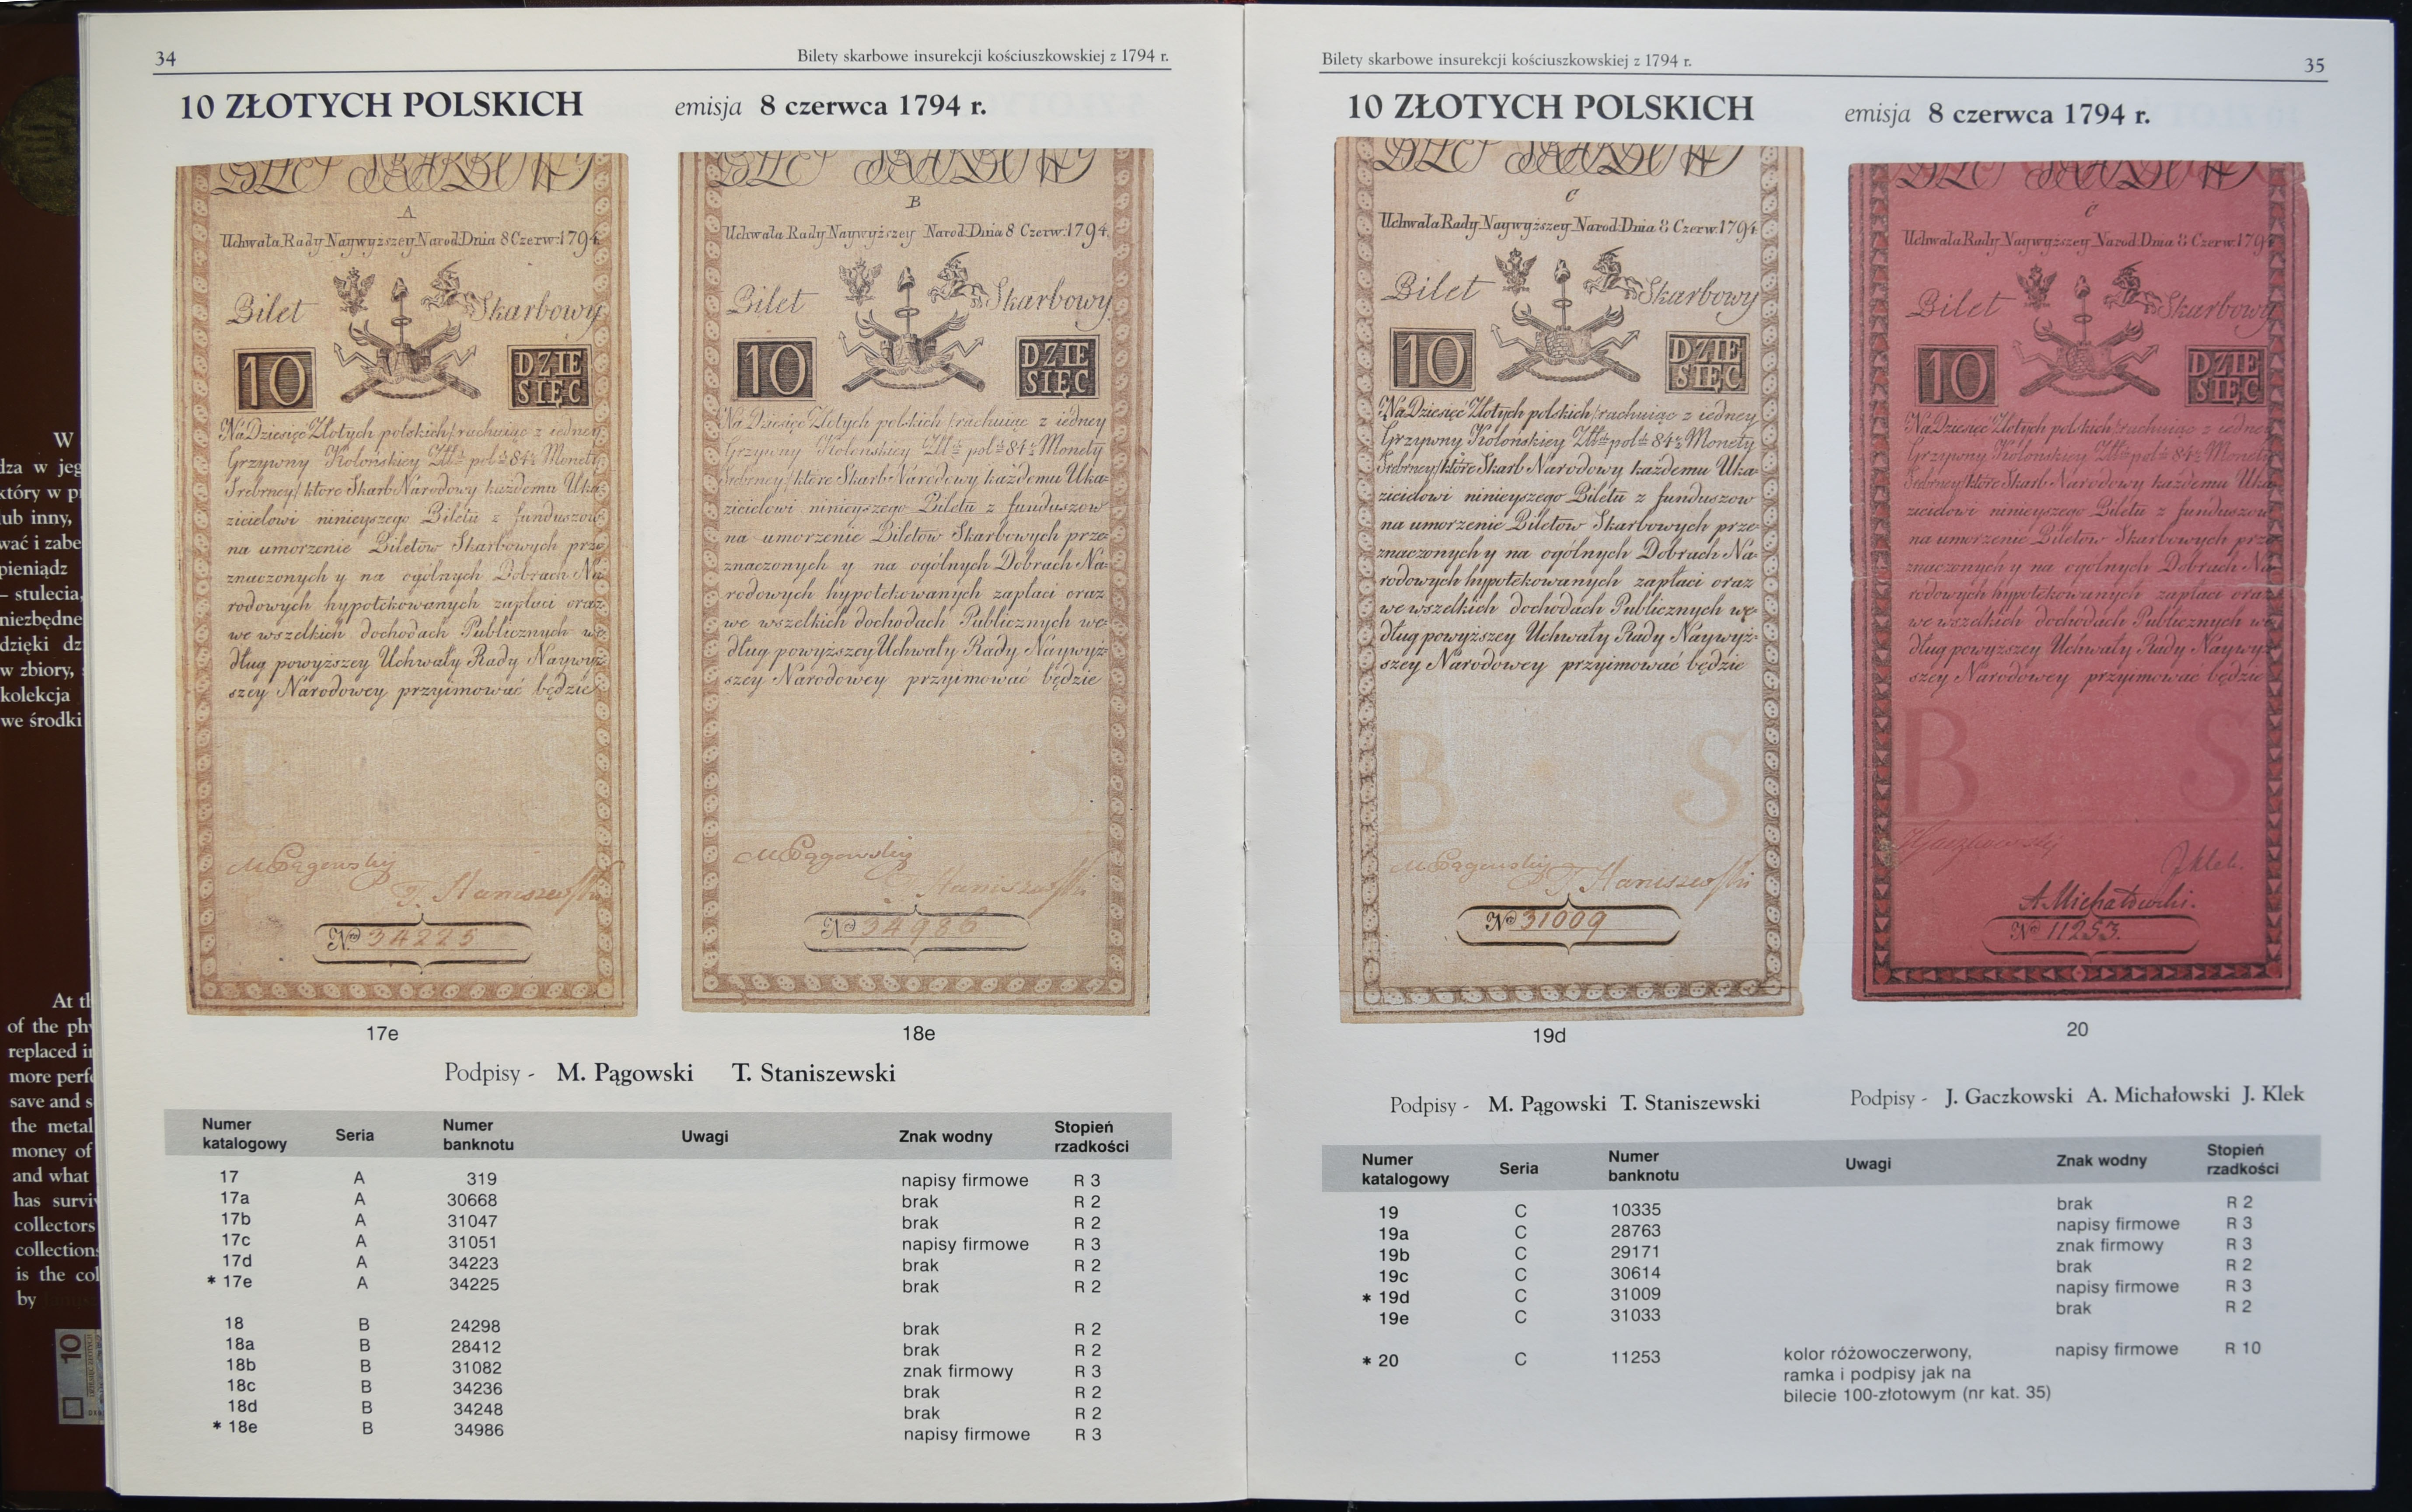 W
dza w jeg
który w p
lub inny,
wać i zabe
pieniądz
– stulecia,
niezbędne
dzięki dz
w zbiory,
kolekcja
we środki
At th
of the ph
replaced i
more perf
save and s
the metal
money of
and what
has surviv
collectors
collections
is the col
by
10
34
Bilety skarbowe insurekcji kościuszkowskiej z 1794 r.
10 ZŁOTYCH POLSKICH emisja 8 czerwca 1794 r.
BILET SKARBOWY
A
Uchwała Rady Naywyzszey Narod: Dnia 8 Czerw: 1794.
Bilet Skarbowy
10
DZIE
SIĘC
Na Dziesięc Złotych polskich /: rachuiąc z iedney
Grzywny Kolońskiey Złł: pol: 84½ Monety
Srebrney/ które Skarb Narodowy każdemu Uka
zicielowi ninieyszego Biletu z funduszow
na umorzenie Biletow Skarbowych prze
znaczonych y na ogólnych Dobrach Na
rodowych hypotekowanych zapłaci oraz
we wszelkich dochodach Publicznych we
dług powyższey Uchwały Rady Naywyż
szey Narodowey przyimować będzie
M Pągowski
T. Staniszewski
No 34225
17e
BILET SKARBOWY
B
Uchwała Rady Naywyższey Narod: Dnia 8 Czerw: 1794.
Bilet Skarbowy
10
DZIE
SIĘC
Na Dziesięc Złotych polskich /: rachuiąc z iedney
Grzywny Kolonskiey Złł: pol: 84½ Monety
Srebrney/ które Skarb Narodowy każdemu Uka=
zicielowi ninieyszego Biletu z funduszow
na umorzenie Biletow Skarbowych prze=
znaczonych y na ogólnych Dobrach Na=
rodowych hypotekowanych zapłaci oraz
we wszelkich dochodach Publicznych we=
dług powyższey Uchwały Rady Naywyż=
szey Narodowey przyimować będzie
B S
M Pągowski
T Staniszewski
No 34986
18e
Podpisy - M. Pągowski T. Staniszewski
Numer katalogowy Seria Numer banknotu Uwagi Znak wodny Stopień rzadkości
17 A 319 napisy firmowe R 3
17a A 30668 brak R 2
17b A 31047 brak R 2
17c A 31051 napisy firmowe R 3
17d A 34223 brak R 2
* 17e A 34225 brak R 2
18 B 24298 brak R 2
18a B 28412 brak R 2
18b B 31082 znak firmowy R 3
18c B 34236 brak R 2
18d B 34248 brak R 2
* 18e B 34986 napisy firmowe R 3
Bilety skarbowe insurekcji kościuszkowskiej z 1794 r.
35
10 ZŁOTYCH POLSKICH emisja 8 czerwca 1794 r.
BILET SKARBOWY
C
Uchwała Rady Naywyższey Narod: Dnia 8 Czerw: 1794.
Bilet Skarbowy
10
DZIE
SIĘC
Na Dziesięć Złotych polskich /: rachuiąc z iedney
Grzywny Kolońskiey Złł: pol: 84½ Monety
Srebrney/ które Skarb Narodowy każdemu Uka=
zicielowi ninieyszego Biletu z funduszow
na umorzenie Biletow Skarbowych prze=
znaczonych y na ogólnych Dobrach Na=
rodowych hypotekowanych zapłaci oraz
we wszelkich dochodach Publicznych we=
dług powyższey Uchwały Rady Naywyż=
szey Narodowey przyimować będzie
B S
M Pągowski
T. Staniszewski
No 31009
19d
BILET SKARBOWY
C
Uchwała Rady Naywyzszey Narod: Dnia 8 Czerw: 179
Bilet Skarbowy
10
DZIE
SIĘC
Na Dziesięć Złotych polskich /: rachuiąc z iedney
Grzywny Kolońskiey Złł: pol: 84½ Monety
Srebrney/ które Skarb Narodowy każdemu Uka
zicielowi ninieyszego Biletu z funduszow
na umorzenie Biletow Skarbowych prze
znaczonych y na ogólnych Dobrach Na
rodowych hypotekowanych zapłaci oraz
we wszelkich dochodach Publicznych we
dług powyższey Uchwały Rady Naywyż
szey Narodowey przyimować będzie
B S
Gaczkowski
J Klek.
A. Michałowski.
No 11253.
20
Podpisy - M. Pągowski T. Staniszewski
Podpisy - J. Gaczkowski A. Michałowski J. Klek
Numer katalogowy Seria Numer banknotu Uwagi Znak wodny Stopień rzadkości
19 C 10335 brak R 2
19a C 28763 napisy firmowe R 3
19b C 29171 znak firmowy R 3
19c C 30614 brak R 2
* 19d C 31009 napisy firmowe R 3
19e C 31033 brak R 2
* 20 C 11253 kolor różowoczerwony, napisy firmowe R 10
ramka i podpisy jak na
bilecie 100-złotowym (nr kat. 35)